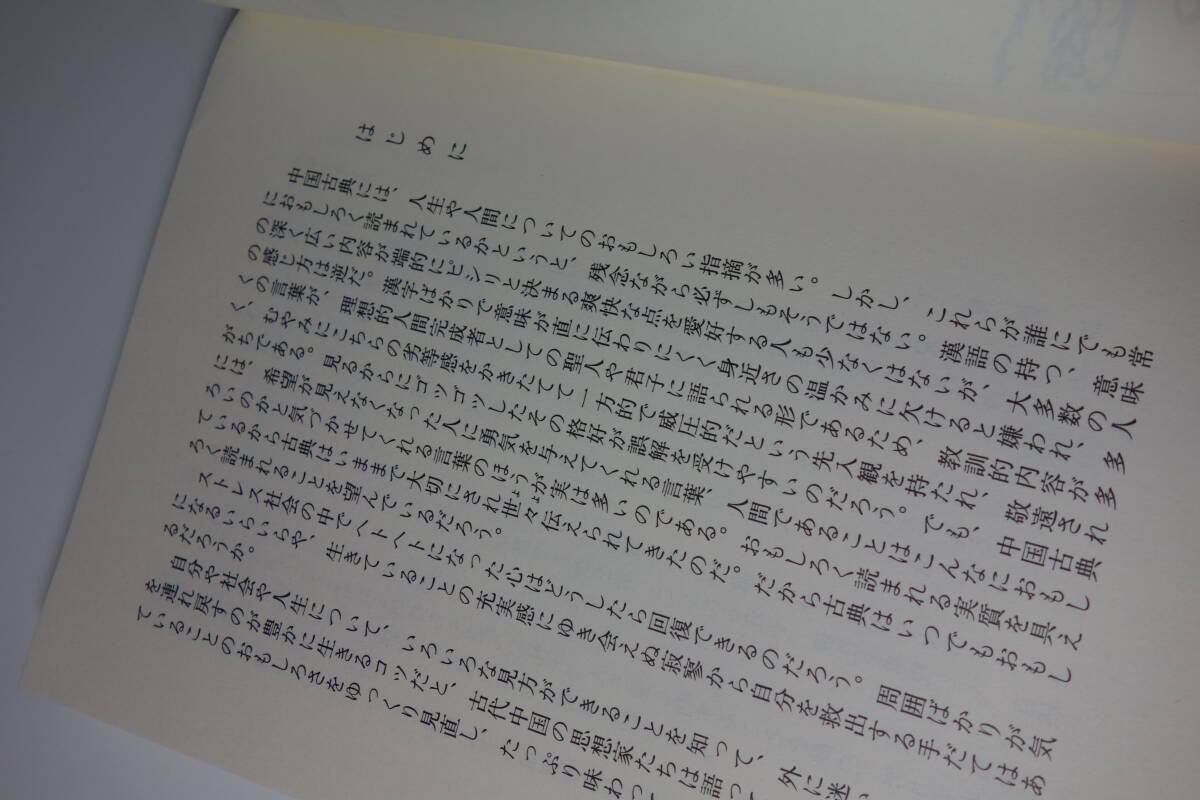 はじめに
中国古典には、人生や人間についてのおもしろい指摘が多い。しかし、これらが誰にでも常
におもしろく読まれているかというと、残念ながら必ずしもそうではない。漢語の持つ、意味
の深く広い内容が端的にピシリと決まる爽快な点を愛好する人も少なくはないが、大多数の人
の感じ方は逆だ。漢字ばかりで意味が直に伝わりにくく身近さの温かみに欠けると嫌われ、多
くの言葉が、理想的人間完成者としての聖人や君子に語られる形であるため、教訓的内容が多
く、むやみにこちらの劣等感をかきたてて一方的で威圧的だという先入観を持たれ、敬遠され
がちである。見るからにゴツゴツしたその格好が誤解を受けやすいのだろう。でも、中国古典
には、希望が見えなくなった人に勇気を与えてくれる言葉、人間であることはこんなにおもし
ろいのかと気づかせてくれる言葉のほうが実は多いのである。おもしろく読まれる実質を具え
ているから古典はいままで大切にされ世々伝えられてきたのだ。だから古典はいつでもおもし
ろく読まれることを望んでいるだろう。
ストレス社会の中でヘトヘトになった心はどうしたら回復できるのだろう。周囲ばかりが気
になるいらいらや、生きていることの充実感にゆき会えぬ寂寥から自分を救出する手だてはあ
るだろうか。
自分や社会や人生について、いろいろな見方ができることを知って、外に迷
を連れ戻すのが豊かに生きるコツだと、古代中国の思想家たちは語っ
ていることのおもしろさをゆっくり見直し、たっぷり味わっ